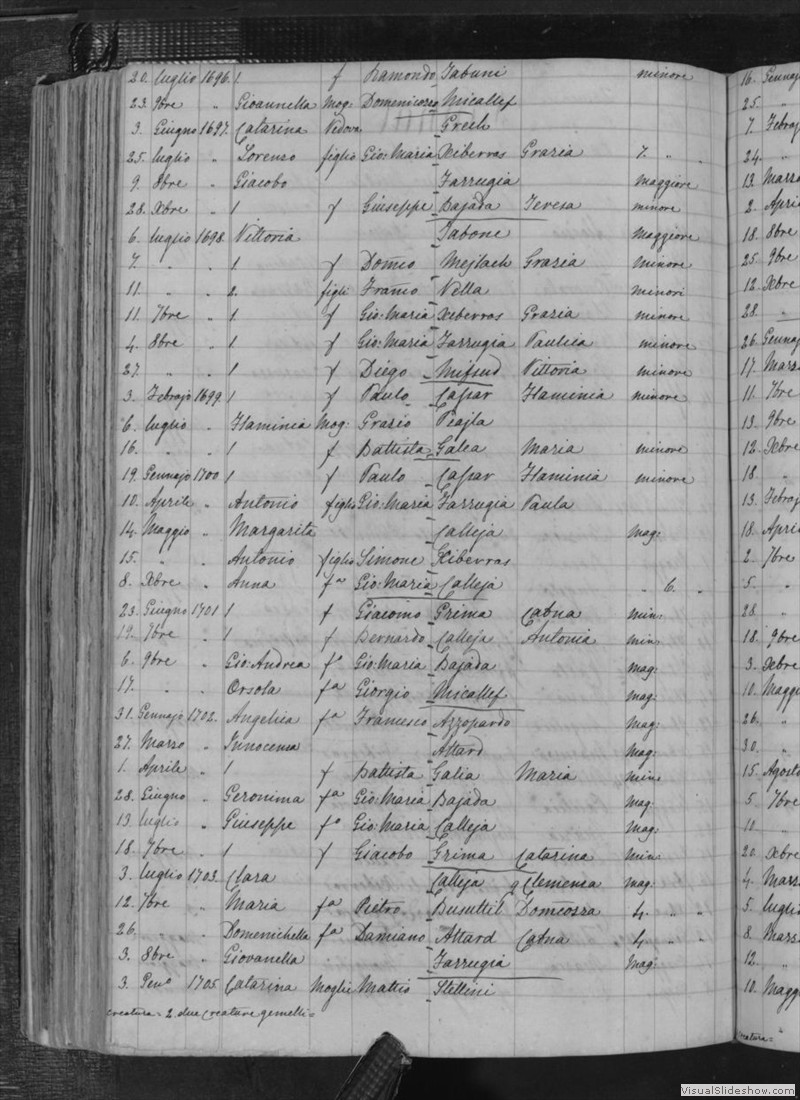 20. luglio 1696. 1 f Ramondo Tabuni minore
23. 9bre " Gioannella Mog: Domenicoseo Micallef
3. Giugno 1697. Catarina Vedova Grech
25. luglio " Lorenso figlio Gio: Maria Xiberras Grazia 7. " "
9. 8bre " Giacobo Farrugia maggiore
28. Xbre " 1 f Giuseppe Bajada Teresa minore
6. luglio 1698. Vittoria Tabone maggiore
7. " " 1. f Domeo Mejlach Grazia minore
11. " " 2. figli Franco Vella minori
11. 7bre " 1 f Gio: Maria Xiberras Grazia minore
4. 8bre " 1 f Gio: Maria Farrugia Paulica minore
27. " " 1 f Diego Mifsud Vittoria minore
3. Febrajo 1699. 1 f Paulo Caspar Flaminia minore
6. luglio " Flaminia Mog: Grazio Psajla
16. " " 1 f Battista Galea Maria minore
19. Gennajo 1700 1 f Paulo Caspar Flaminia minore
10. Aprile " Antonio figlio Gio: Maria Farrugia Paula
14. Maggio " Margarita Calleja mag:
15. " " Antonio figlio Simone Xiberras
8. Xbre " Anna fa Gio: Maria Calleja " 6. "
23. Giugno 1701 1 f Giacomo Grima Catna min:
19. 7bre " 1 f Bernardo Calleja Antonia min:
6. 9bre " Gio: Andrea fo Gio: Maria Bajada mag:
17. " " Orsola fa Giorgio Micallef mag:
31. Gennajo 1702. Angelica fa Francesco Azzopardo mag:
27. Marzo " Innocensa Attard mag:
1. Aprile " 1 f Battista Galia Maria min:
28. Giugno " Geronima fa Gio: Maria Bajada mag:
13. luglio " Giuseppe fo Gio: Maria Calleja Mag:
18. 7bre " 1 f Giacobo Grima Catarina Min:
3. luglio 1703. Clara Calleja q Clemensa mag:
12. 7bre " Maria fa Pietro Busuttil 4. " "
26. " " Domenichella fa Damiano Attard Catna 4. " "
3. 8bre " Giovanella Farrugia Mag:
3. Geno 1705. Catarina Moglie Matteo Stellini
creatura = 2. due creature gemelli =
16. Gennaj
25. "
7. Febraj
24. "
13. Marzo
2. Apri
18. 8bre
25. 9bre
12. Xbre
28. "
26. Gennaj
17. Marzo
11. 7bre
13. 9bre
12. Xbre
18. "
13. Febraj
18. Apri
2. 7bre
5. "
28. "
18. 9bre
3. Xbre
10. Magg
26. "
30. "
15. Agosto
5. 7bre
10 "
20. Xbre
4. Marz
5. luglio
8. Mars
12. "
10. Magg
creatura =
VisualSlideshow.com